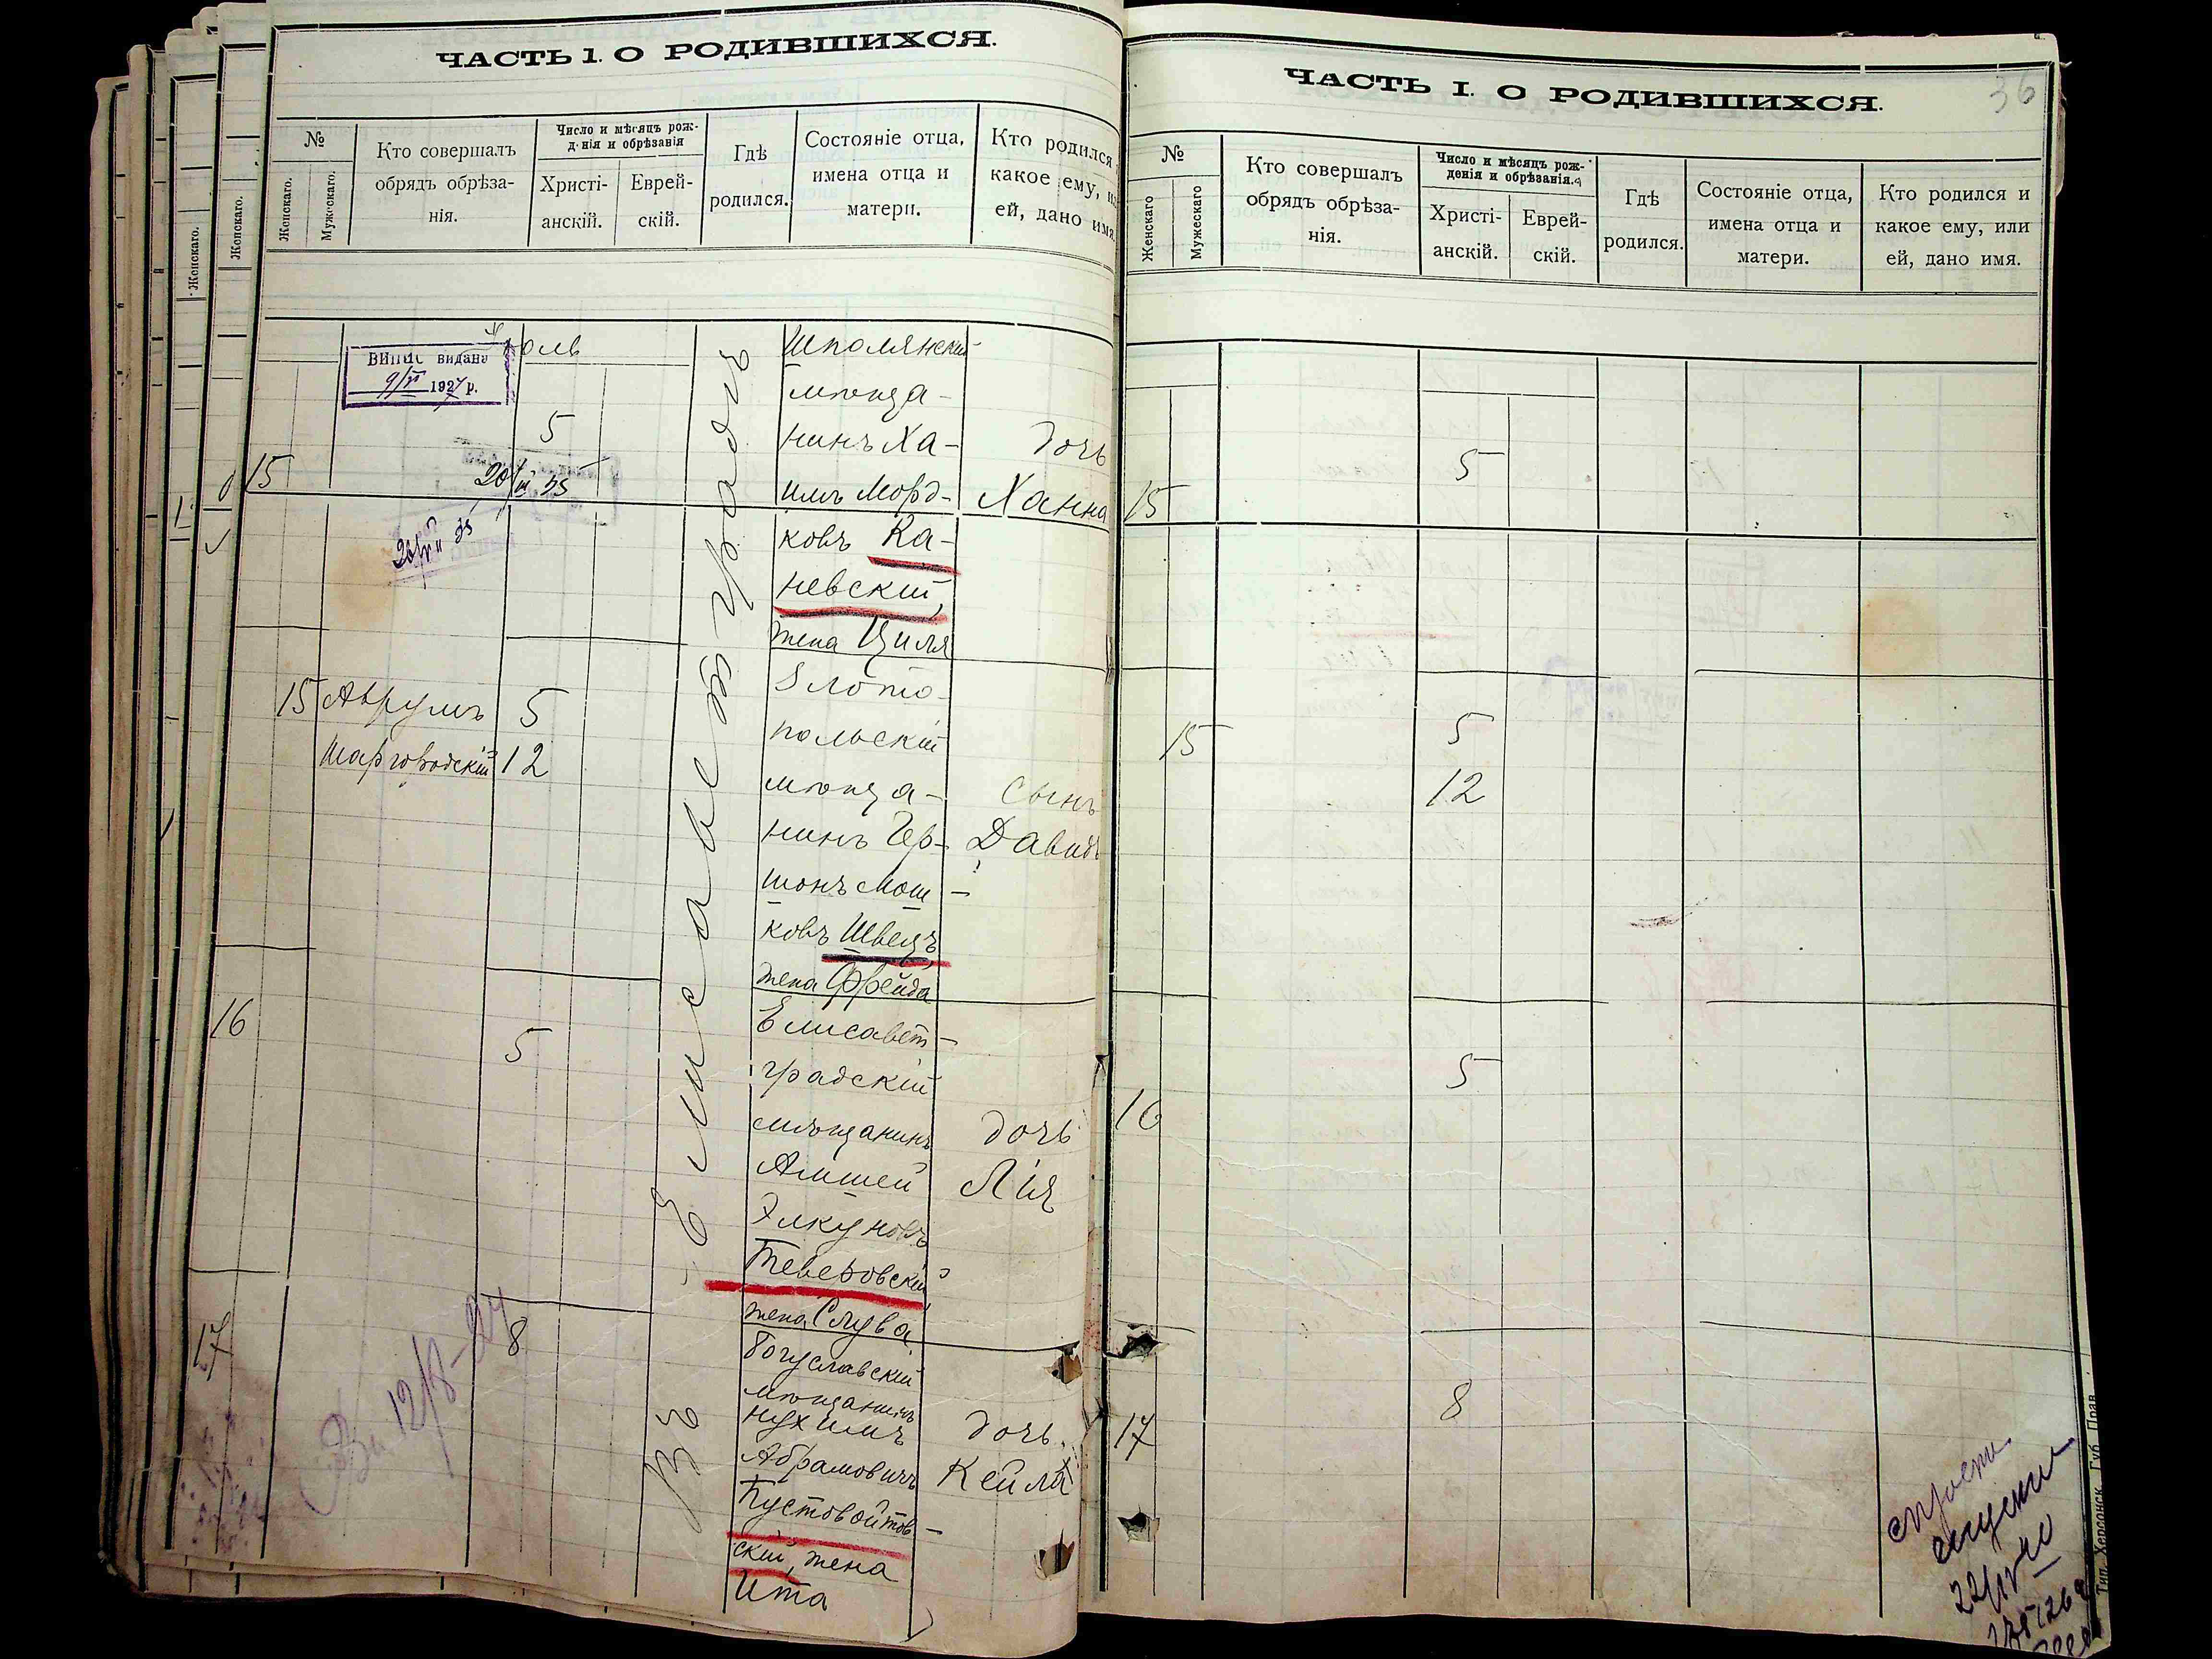 ЧАСТЬ 1. О РОДИВШИХСЯ.
№
Женскаго.
Мужескаго.
Кто совершалъ
обрядъ обрѣза-
нія.
Число и мѣсяцъ рож-
д нія и обрѣзанія
Христі-
анскій.
Еврей-
скій.
Гдѣ
родился.
Состояніе отца,
имена отца и
матери.
Кто родился
какое ему, и
ей, дано имя.
Женскаго.
Женскаго.
ВИПИС видано
9/VI 1927 р.
15
5
Шполянскій
мѣща-
нинъ Ха-
имъ Морд-
ковъ Ка-
невскій,
жена Циля
дочь
Ханна
15
Аврумъ
Шаргородскій
5
12
Злото-
польскій
мѣща-
нинъ Гер-
шонъ Мош-
ковъ Швецъ,
жена Фрейда
сынъ
Давидъ
16
5
Елисавет-
градскій
мѣщанинъ
Амшей
Элкуновъ
Теверовскій,
жена Слува
дочь
Лія
17
8
Богуславскій
мѣщанинъ
Нухимъ
Абрамовичъ
Пустовойтов-
скій, жена
Ита
дочь
Кейла
Въ Елисаветградѣ
ЧАСТЬ I. О РОДИВШИХСЯ.
36
№
Женскаго
Мужескаго
Кто совершалъ
обрядъ обрѣза-
нія.
Число и мѣсяцъ рож-
денія и обрѣзанія.
Христі-
анскій.
Еврей-
скій.
Гдѣ
родился.
Состояніе отца,
имена отца и
матери.
Кто родился и
какое ему, или
ей, дано имя.
15
5
15
5
12
16
5
17
8
Тип. Херсонск. Губ. Прав.